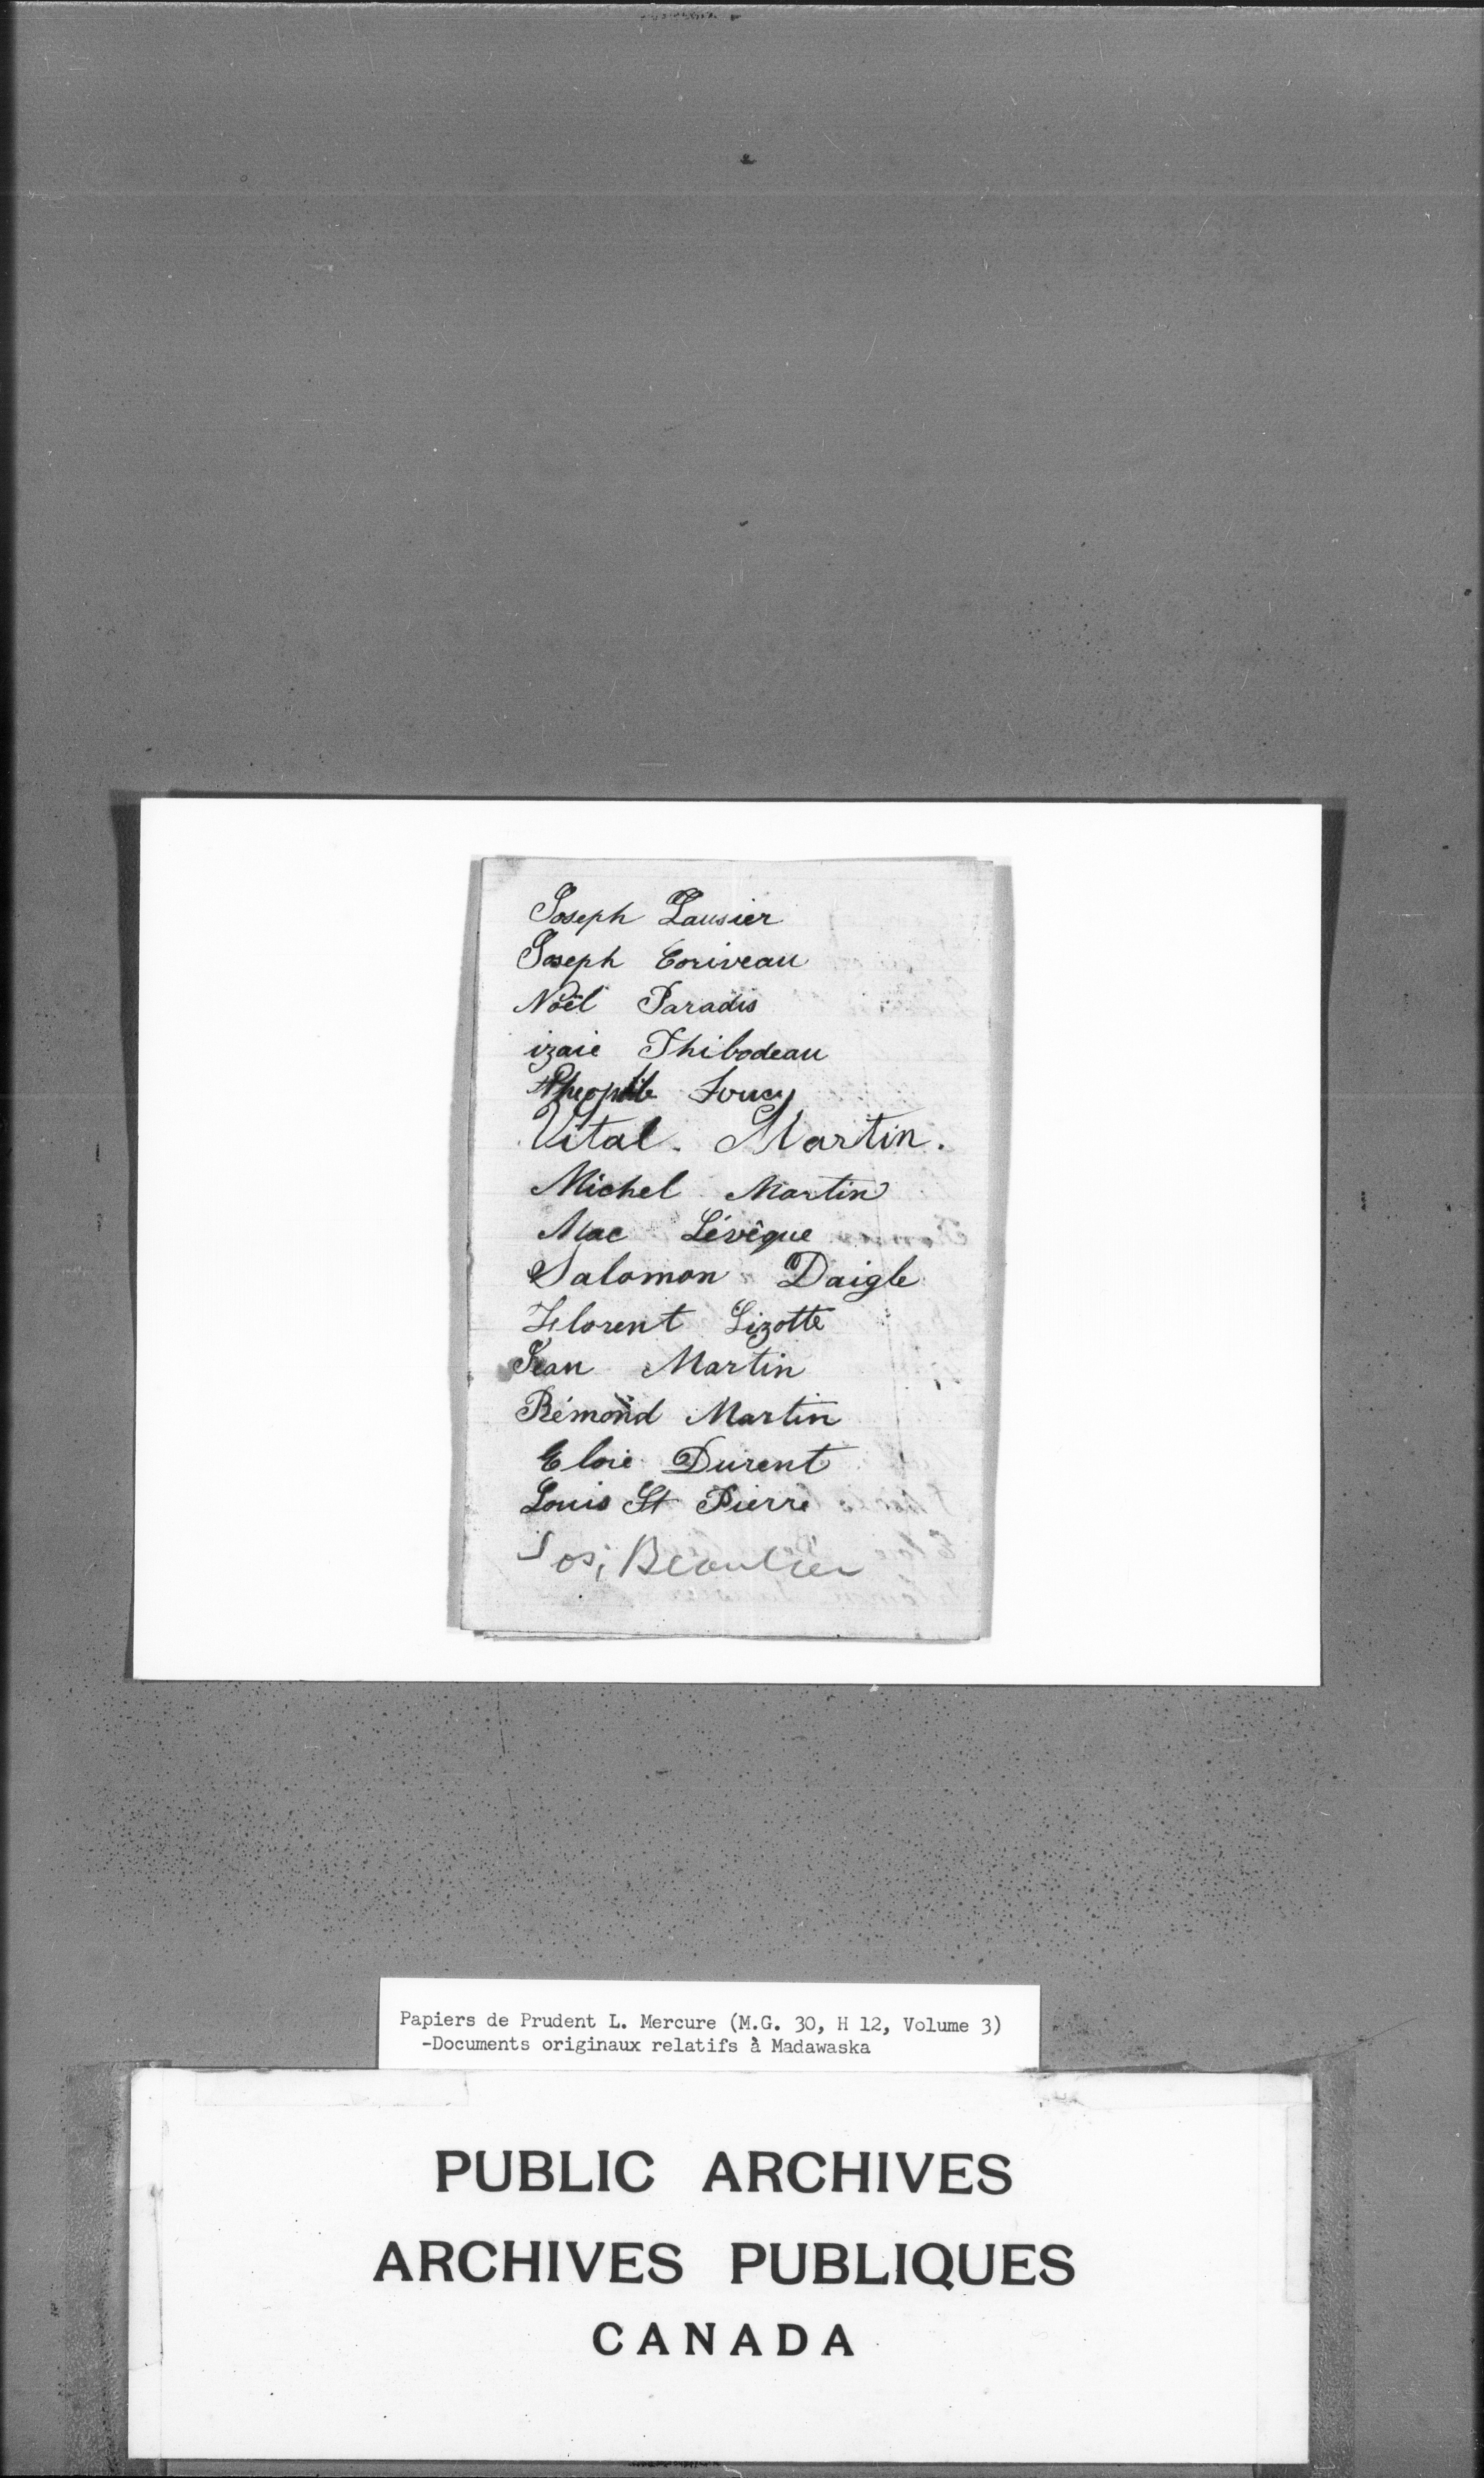 Joseph Lausier
Joseph Coriveau
Noël Paradis
izaie Thibodeau
Theophile Soucy
Vital. Martin.
Michel Martin
Mac Lévêque
Salomon Daigle
Florent Lizotte
Jean Martin
Rémond Martin
Eloie Durent
Louis St Pierre
Jos, Beaulieu
Papiers de Prudent L. Mercure (M.G. 30, H 12, Volume 3)
-Documents originaux relatifs à Madawaska
PUBLIC ARCHIVES
ARCHIVES PUBLIQUES
CANADA